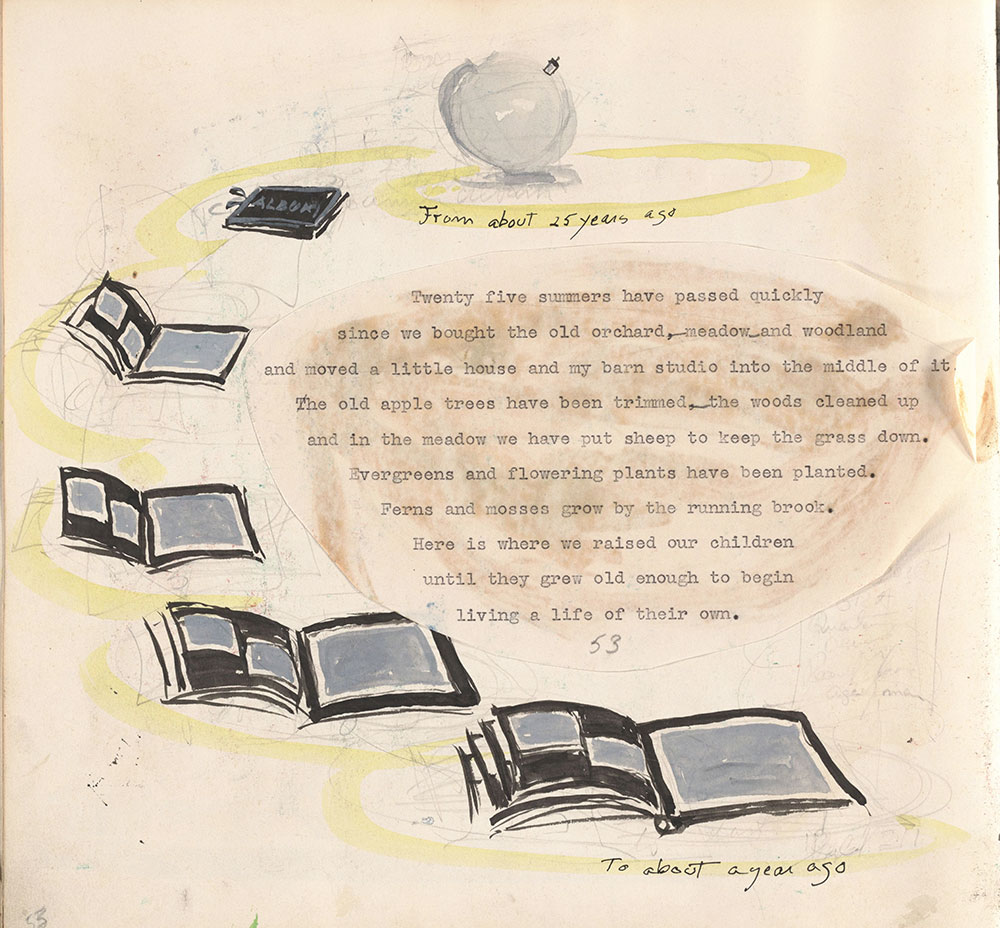 ALBUM
From about 25 years ago
Twenty five summers have passed quickly
since we bought the old orchard, meadow and woodland
and moved a little house and my barn studio into the middle of it.
The old apple trees have been trimmed, the woods cleaned up
and in the meadow we have put sheep to keep the grass down.
Evergreens and flowering plants have been planted.
Ferns and mosses grow by the running brook.
Here is where we raised our children
until they grew old enough to begin
living a life of their own.
53
To about a year ago
53